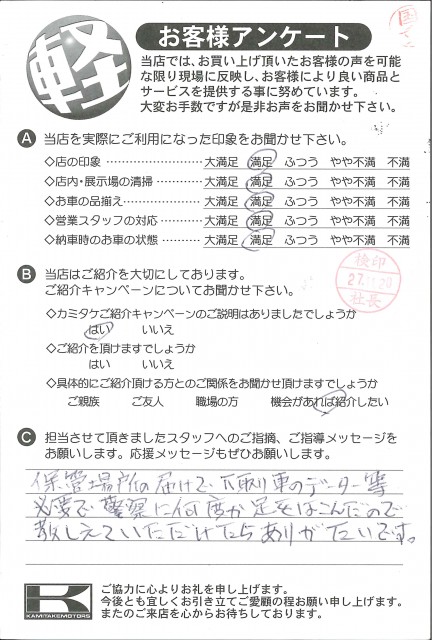 軽
お客様アンケート
当店では、お買い上げ頂いたお客様の声を可能
な限り現場に反映し、お客様により良い商品と
サービスを提供する事に努めています。
大変お手数ですが是非お声をお聞かせ下さい。
A 当店を実際にご利用になった印象をお聞かせ下さい。
◇店の印象 ……………………… 大満足 満足 ふつう やや不満 不満
◇店内・展示場の清掃 ………… 大満足 満足 ふつう やや不満 不満
◇お車の品揃え………………… 大満足 満足 ふつう やや不満 不満
◇営業スタッフの対応 ………… 大満足 満足 ふつう やや不満 不満
◇納車時のお車の状態 ………… 大満足 満足 ふつう やや不満 不満
検印
27.11.20
社長
B 当店はご紹介を大切にしております。
ご紹介キャンペーンについてお聞かせ下さい。
◇カミタケご紹介キャンペーンのご説明はありましたでしょうか
はい いいえ
◇ご紹介を頂けますでしょうか
はい いいえ
◇具体的にご紹介頂ける方とのご関係をお聞かせ頂けますでしょうか
ご親族 ご友人 職場の方 機会があれば紹介したい
C 担当させて頂きましたスタッフへのご指摘、ご指導メッセージを
お願いします。応援メッセージもぜひお願いします。
保管場所の届けで、下取り車のデーター等
必要で警察に何度か足をはこんだので
教しえていただけたらありがたいです。
K
KAMITAKEMOTORS
ご協力に心よりお礼を申し上げます。
今後とも宜しくお引き立てご愛顧の程お願い申し上げます。
またのご来店を心からお待ちしております。